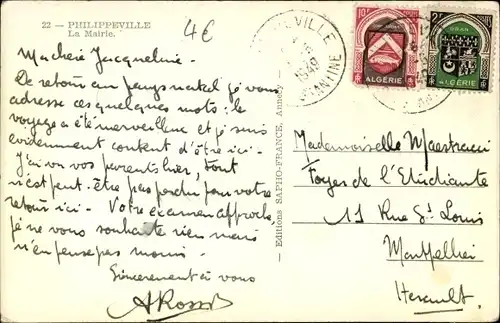 22 — PHILIPPEVILLE
La Mairie.
4€
Ma chère Jacqueline.
De retour au pays natal je vous
adresse ces quelques mots : le
voyage a été merveilleux et je suis
évidemment content d'être ici.
J'ai vu vos parents hier, tout
n'est peut-être pas perdu pour votre
retour ici. Votre examen approche
je ne vous souhaite rien mais
n'en pense pas moins.
Sincèrement à vous
ARossi
Editions SAPHO-FRANCE, Annecy
PHILIPPEVILLE
1949
CONSTANTINE
10F
ALGÉRIE
ORAN
ALGÉRIE
Mademoiselle Maestracci
Foyer de l'Etudiante
11 Rue St Louis
Montpellier
Herault.